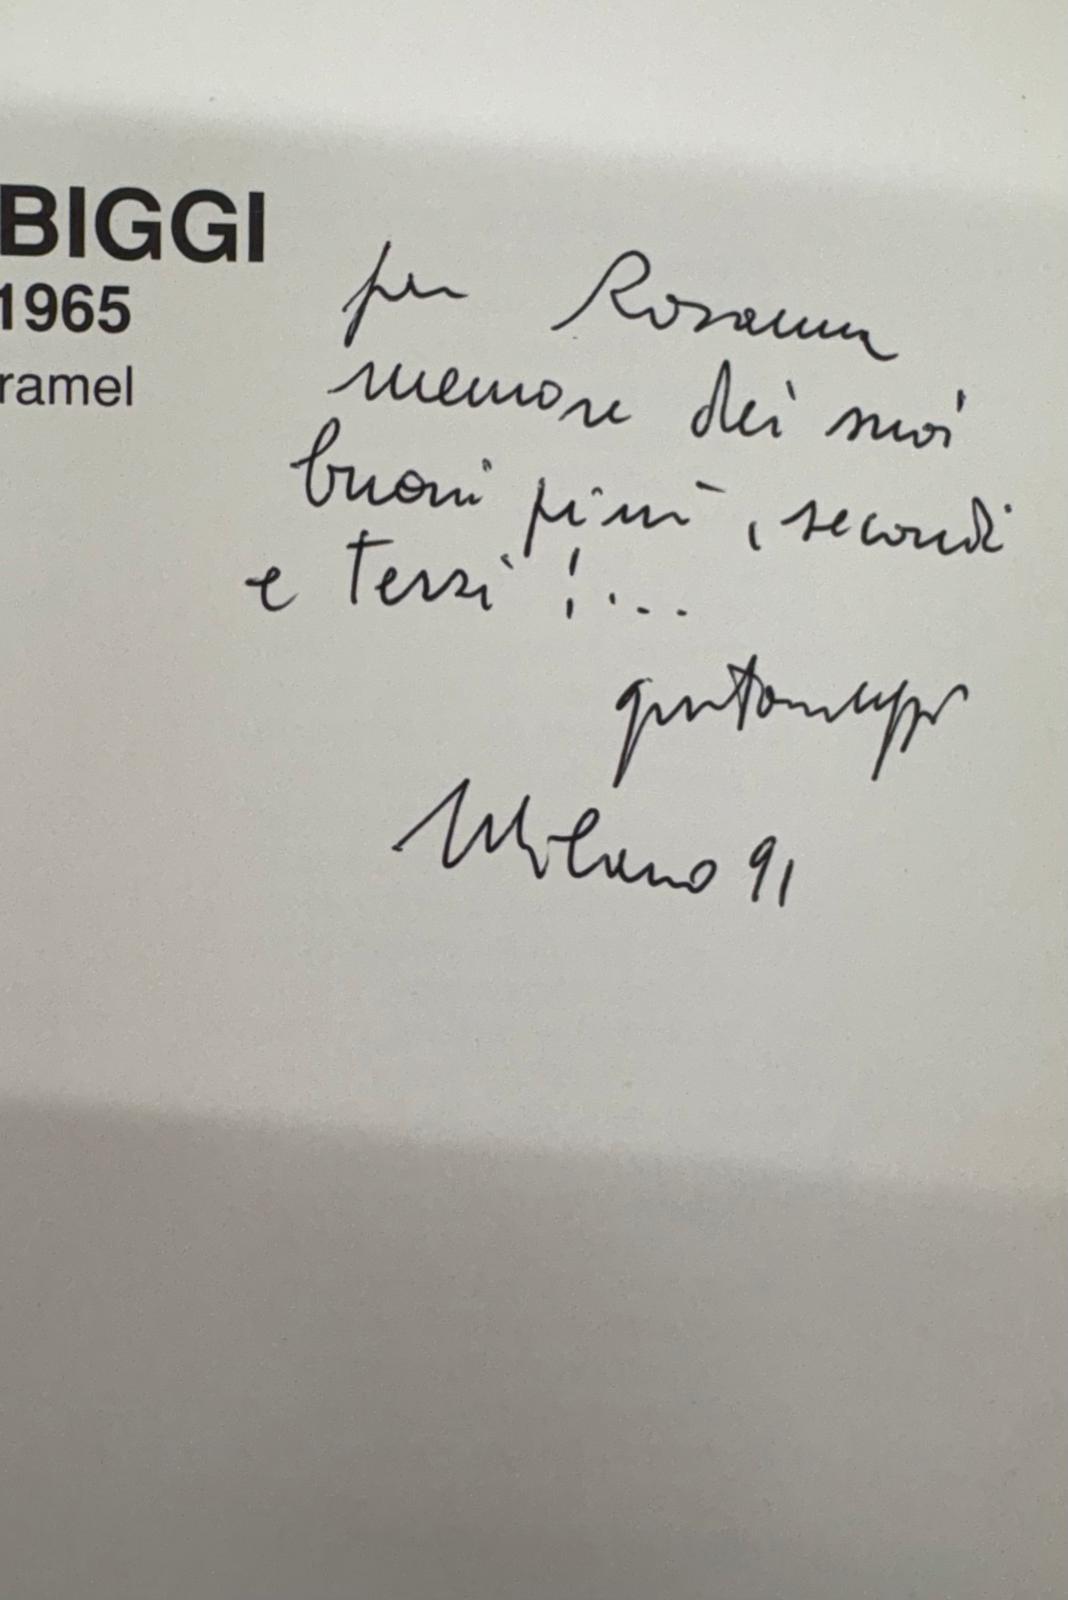 BIGGI
1965
ramel
per Rosanna
memore dei suoi
buoni primi, secondi
e terzi!...
Milano 91